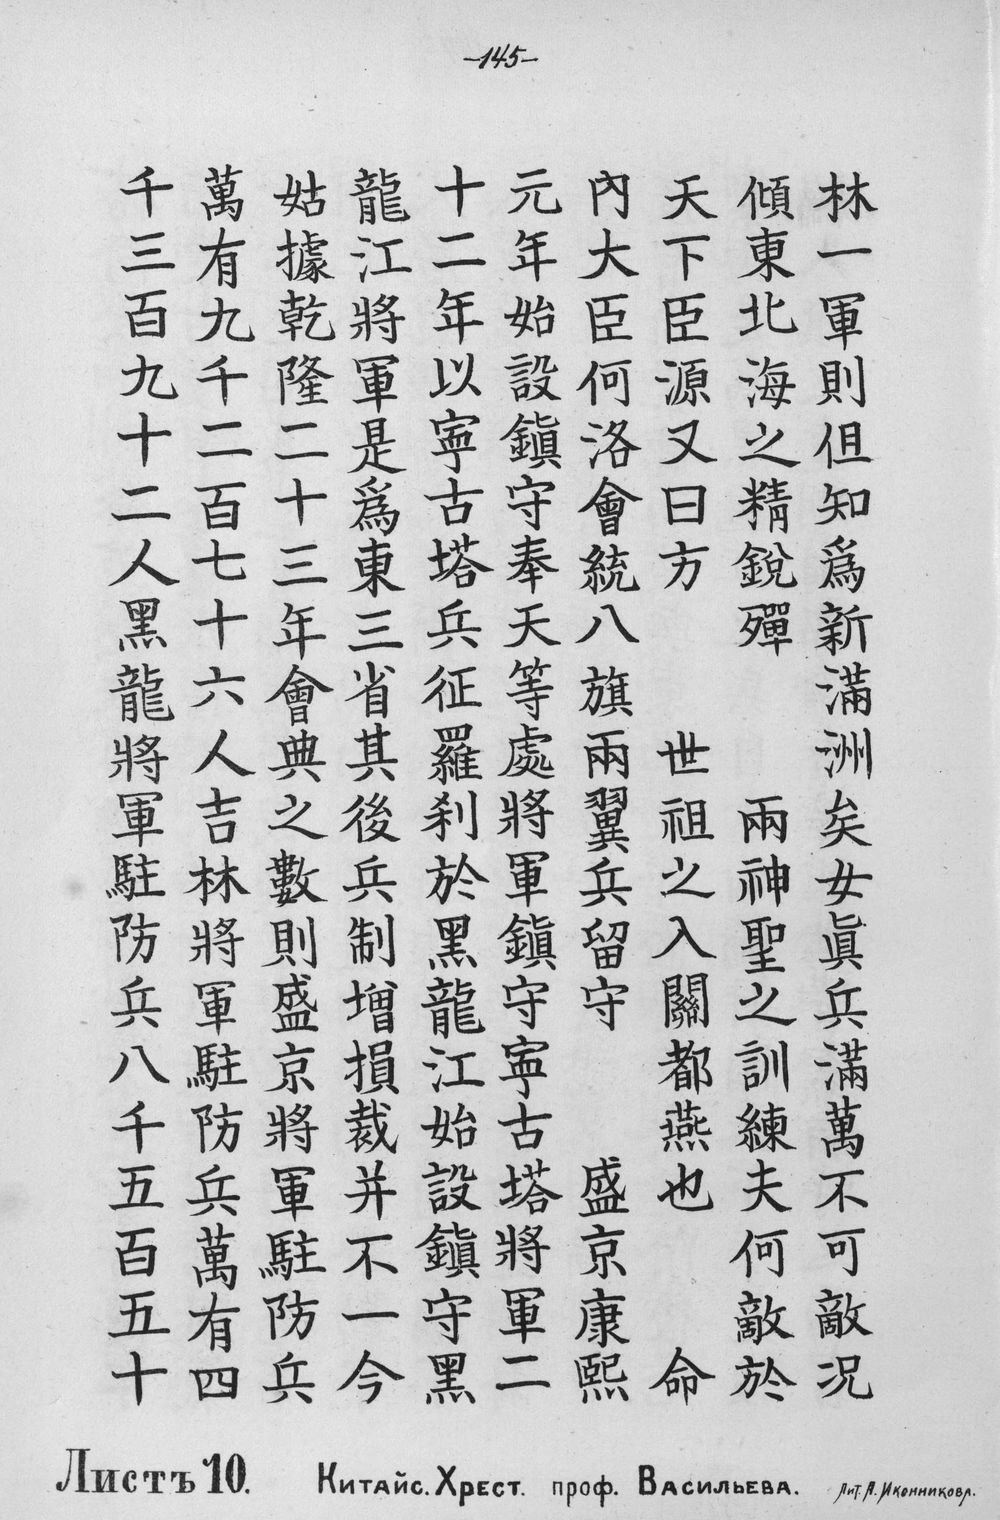 —145—
林一軍則但知爲新滿洲矣女眞兵滿萬不可敵况
傾東北海之精銳殫　兩神聖之訓練夫何敵於
天下臣源又曰方　世祖之入關都燕也　命
內大臣何洛會統八旗兩翼兵留守　盛京康熙
元年始設鎭守奉天等處將軍鎭守寧古塔將軍二
十二年以寧古塔兵征羅刹於黑龍江始設鎭守黑
龍江將軍是爲東三省其後兵制增損裁并不一今
姑據乾隆二十三年會典之數則盛京將軍駐防兵
萬有九千二百七十六人吉林將軍駐防兵萬有四
千三百九十二人黑龍將軍駐防兵八千五百五十
Листъ 10. Китайс. Хрест. проф. Васильева. Лит. А. Иконникова.